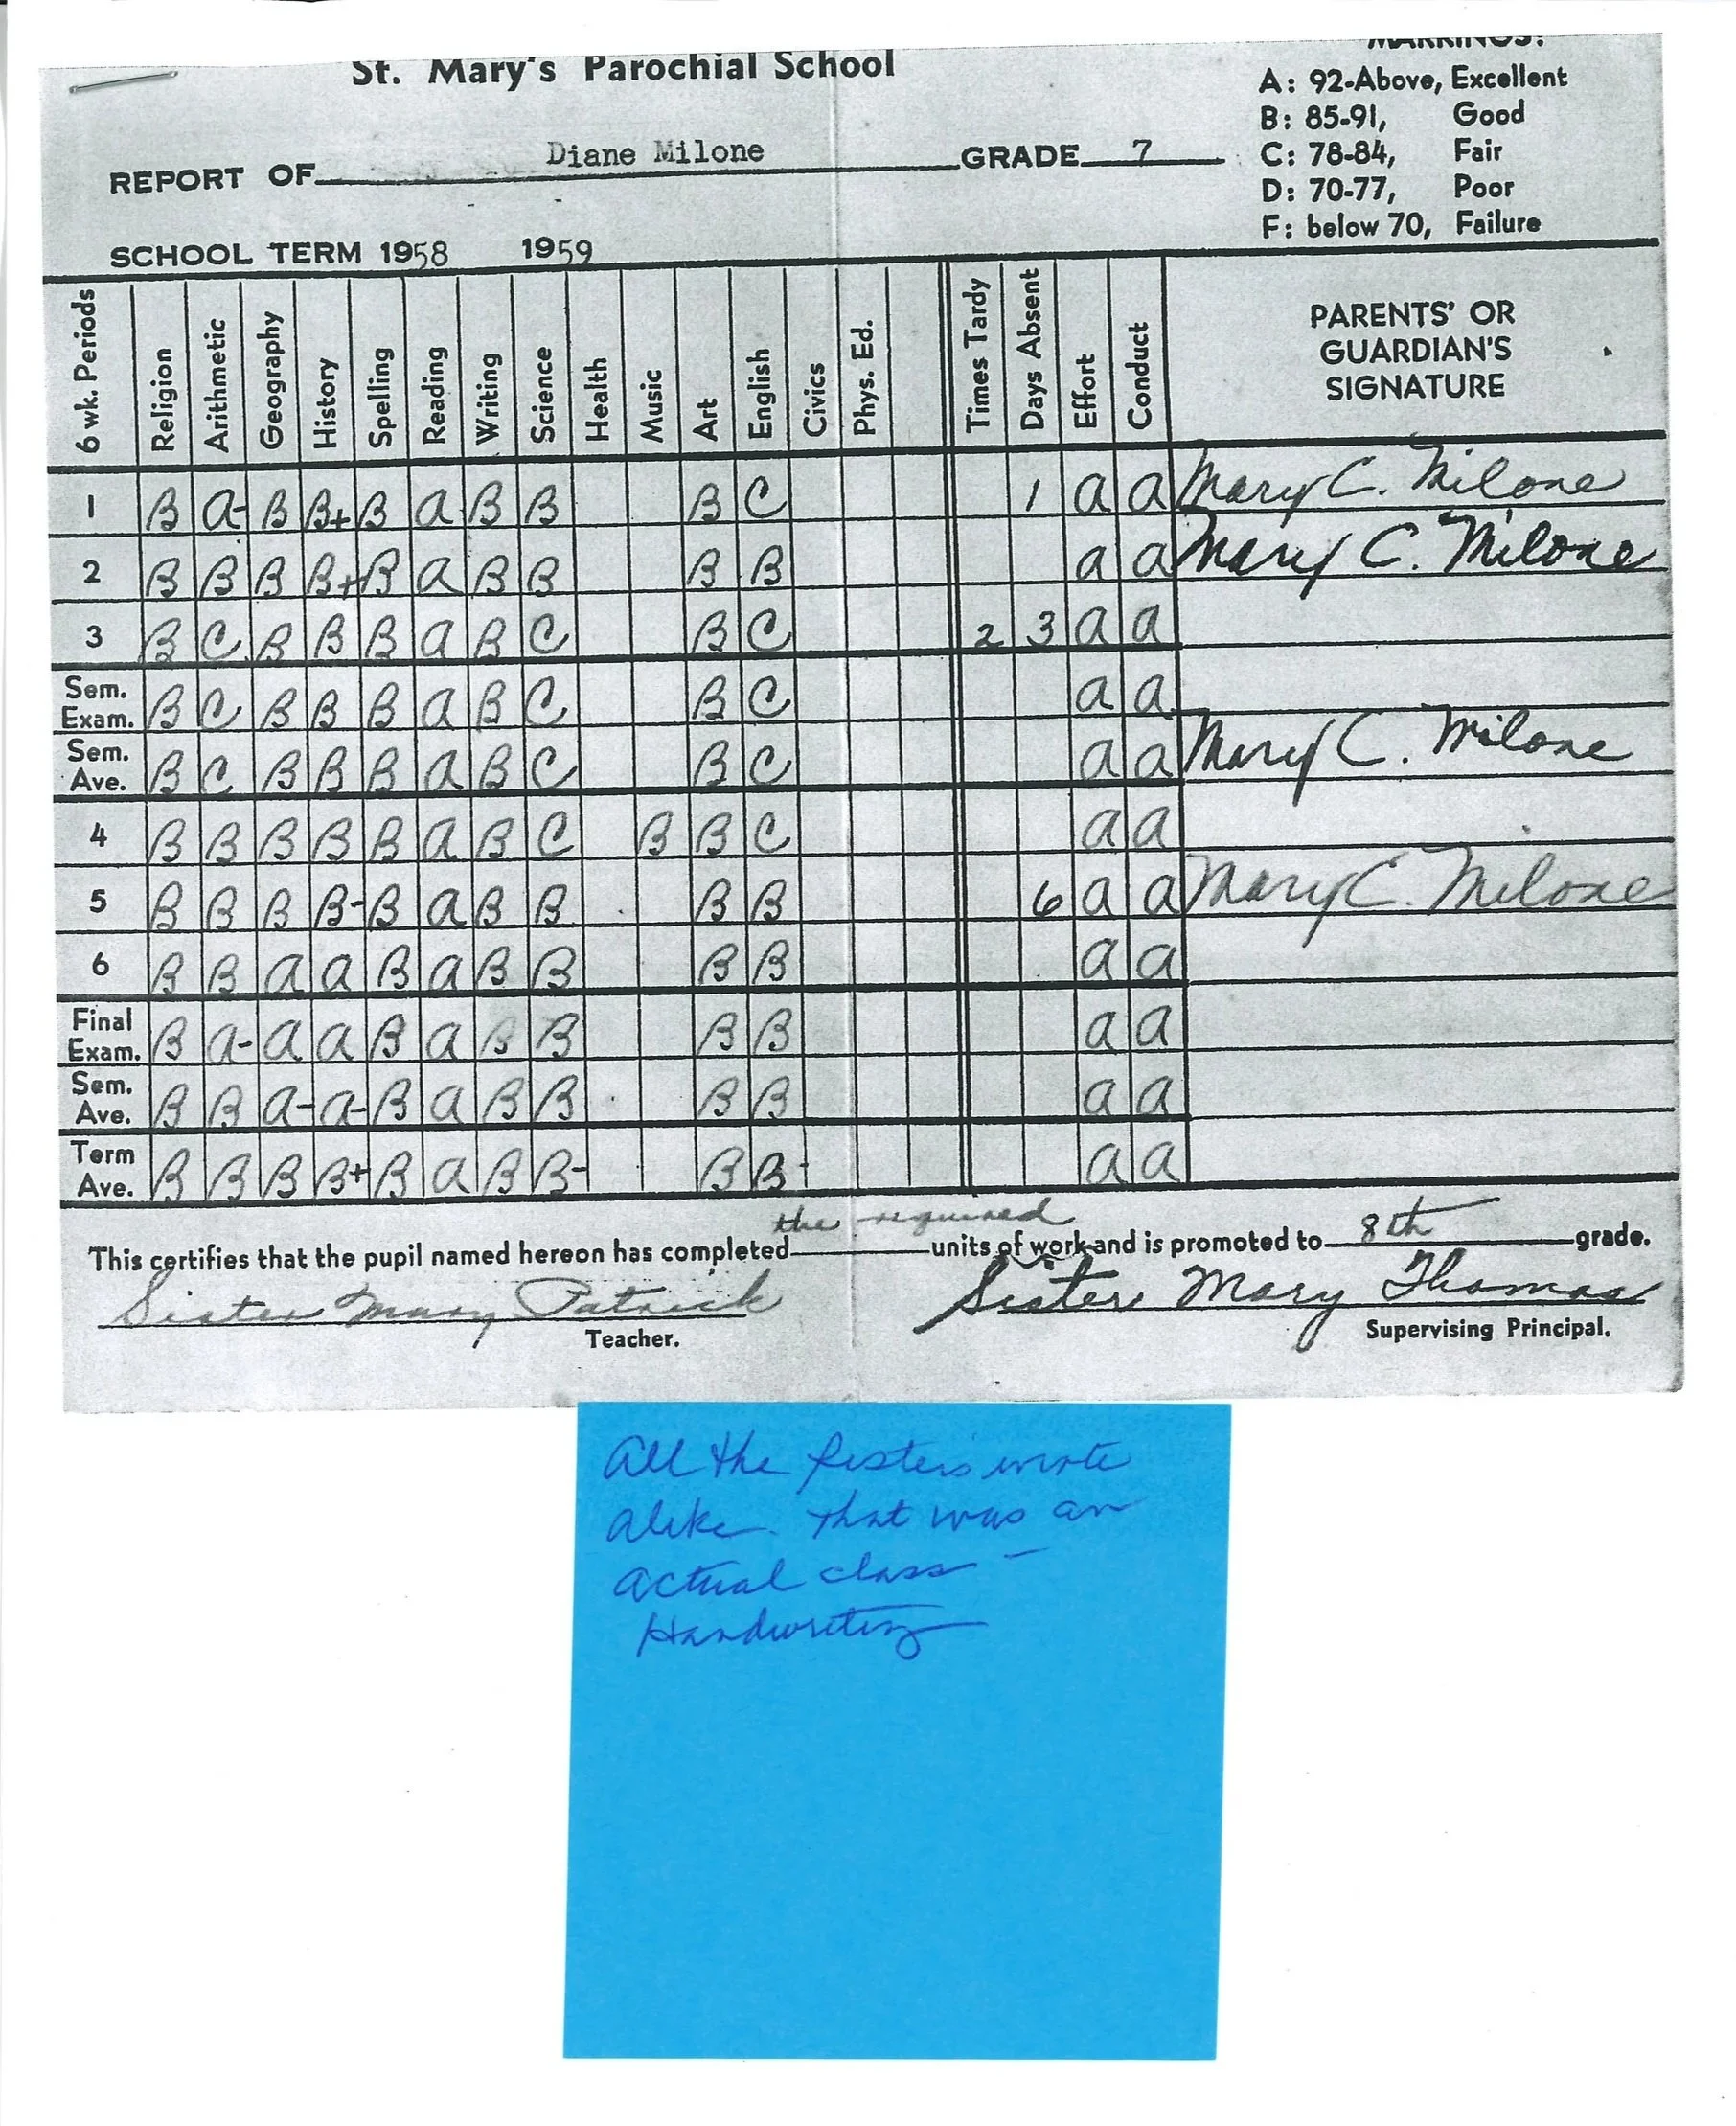 St. Mary's Parochial School
MARKINGS:
A: 92-Above, Excellent
B: 85-91, Good
C: 78-84, Fair
D: 70-77, Poor
F: below 70, Failure
REPORT OF Diane Milone GRADE 7
SCHOOL TERM 1958 1959
6 wk. Periods Religion Arithmetic Geography History Spelling Reading Writing Science Health Music Art English Civics Phys. Ed. Times Tardy Days Absent Effort Conduct PARENTS' OR GUARDIAN'S SIGNATURE
1 B A- B B+ B A B B B C 1 A A Mary C. Milone
2 B B B B+ B A B B B B A A Mary C. Milone
3 B C B B B A B C B C 2 3 A A
Sem. Exam. B C B B B A B C B C A A
Sem. Ave. B C B B B A B C B C A A Mary C. Milone
4 B B B B B A B C B B C A A
5 B B B B- B A B B B B 6 A A Mary C. Milone
6 B B A A B A B B B B A A
Final Exam. B A- A A B A B B B B A A
Sem. Ave. B B A- A- B A B B B B A A
Term Ave. B B B B+ B A B B- B B- A A
This certifies that the pupil named hereon has completed the required units of work and is promoted to 8th grade.
Sister Mary Patrick Sister Mary Thomas
Teacher. Supervising Principal.
All the Sisters wrote
alike. That was an
actual class —
Handwriting